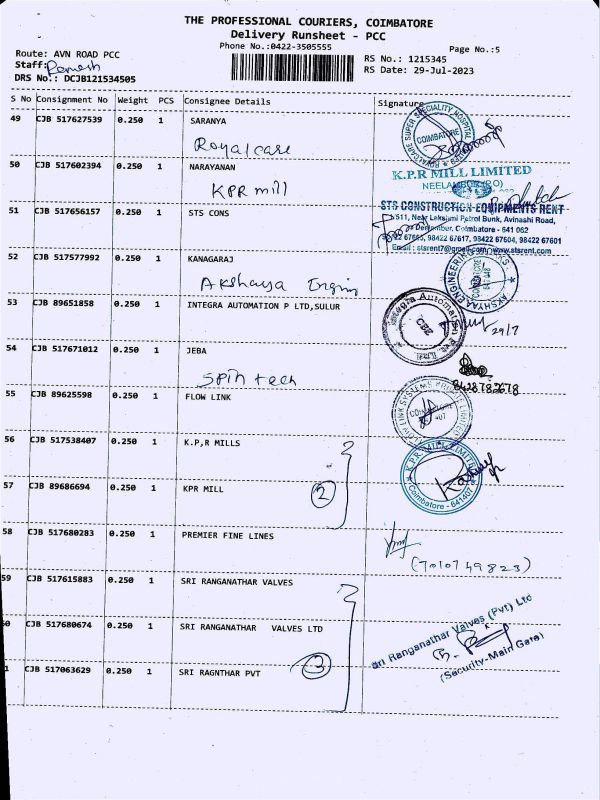 THE PROFESSIONAL COURIERS, COIMBATORE
Delivery Runsheet - PCC
Phone No.:0422-3505555
Page No.:5
Route: AVN ROAD PCC
Staff: Ramesh
DRS No.: DCJB121534505
RS No.: 1215345
RS Date: 29-Jul-2023
S No Consignment No Weight PCS Consignee Details Signature
49 CJB 517627539 0.250 1 SARANYA
Royalcare
ROYALCARE SUPER SPECIALITY HOSPITAL
COIMBATORE
50 CJB 517602394 0.250 1 NARAYANAN
KPR mill
K.P.R MILL LIMITED
51 CJB 517656157 0.250 1 STS CONS
STS CONSTRUCTION EQUIPMENTS RENT
Petrol Bunk, Avinashi Road,
Coimbatore - 641 062
98422 67617, 98422 67604, 98422 67601
52 CJB 517577992 0.250 1 KANAGARAJ
Akshaya
53 CJB 89651858 0.250 1 INTEGRA AUTOMATION P LTD,SULUR
Integra Automation Pvt. Ltd.
29/7
54 CJB 517671012 0.250 1 JEBA
Spin tech
55 CJB 89625598 0.250 1 FLOW LINK
56 CJB 517538407 0.250 1 K.P,R MILLS
57 CJB 89686694 0.250 1 KPR MILL
2
Coimbatore - 641407
58 CJB 517680283 0.250 1 PREMIER FINE LINES
(7010749823)
59 CJB 517615883 0.250 1 SRI RANGANATHAR VALVES
CJB 517680674 0.250 1 SRI RANGANATHAR VALVES LTD
CJB 517063629 0.250 1 SRI RAGNTHAR PVT
3
Sri Ranganathar Valves (Pvt) Ltd
(Security-Main Gate)